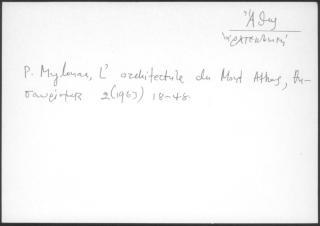 Ἄθως
P. Mylonas, L' architecture du Mont Athos, Θη-
σαυρίσματα 2 (1963) 18-48